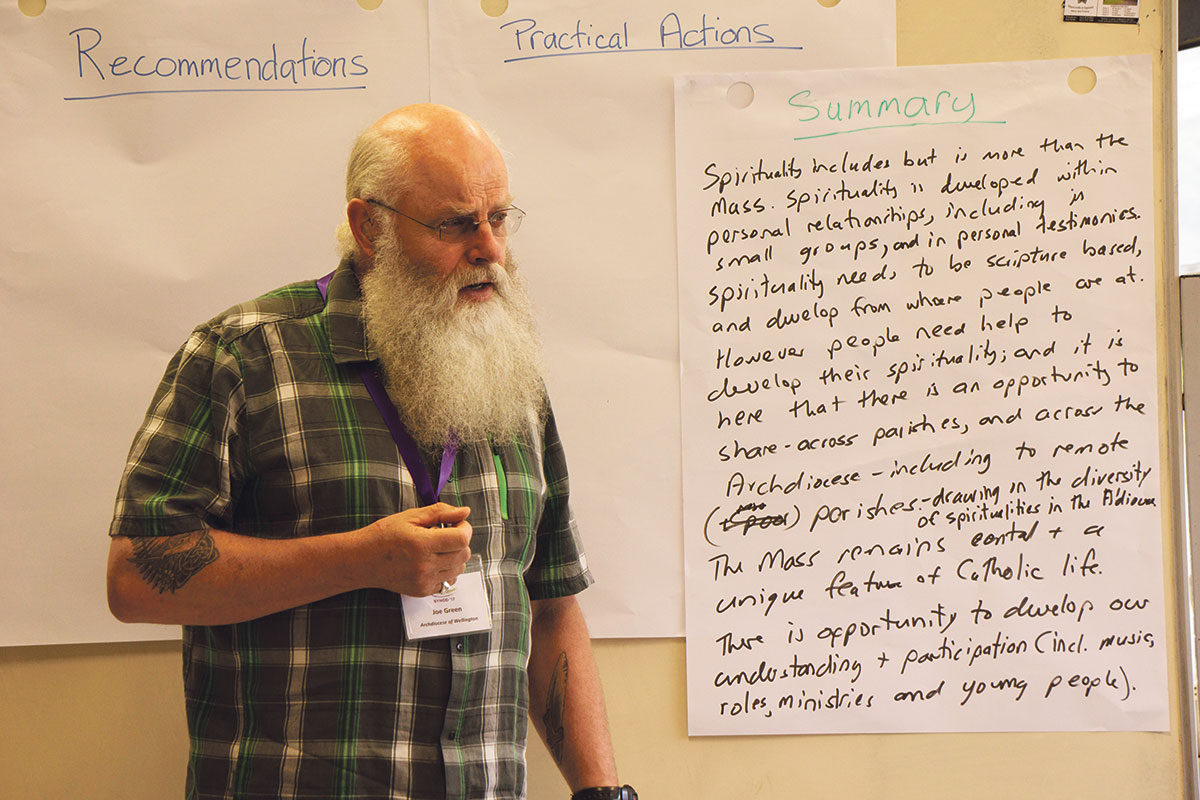 Recommendations
Practical Actions
Summary
Spirituality includes but is more than the
Mass. Spirituality is developed within
personal relationships, including in
small groups, and in personal testimonies.
Spirituality needs to be scripture based,
and develop from where people are at.
However people need help to
develop their spirituality; and it is
here that there is an opportunity to
share - across parishes, and across the
Archdiocese - including to remote
parishes. - drawing in the diversity
of spiritualities in the A'diocese
The Mass remains central + a
unique feature of Catholic life.
There is opportunity to develop our
understanding + participation (incl. music,
roles, ministries and young people).
SYNOD '17
Joe Green
Archdiocese of Wellington